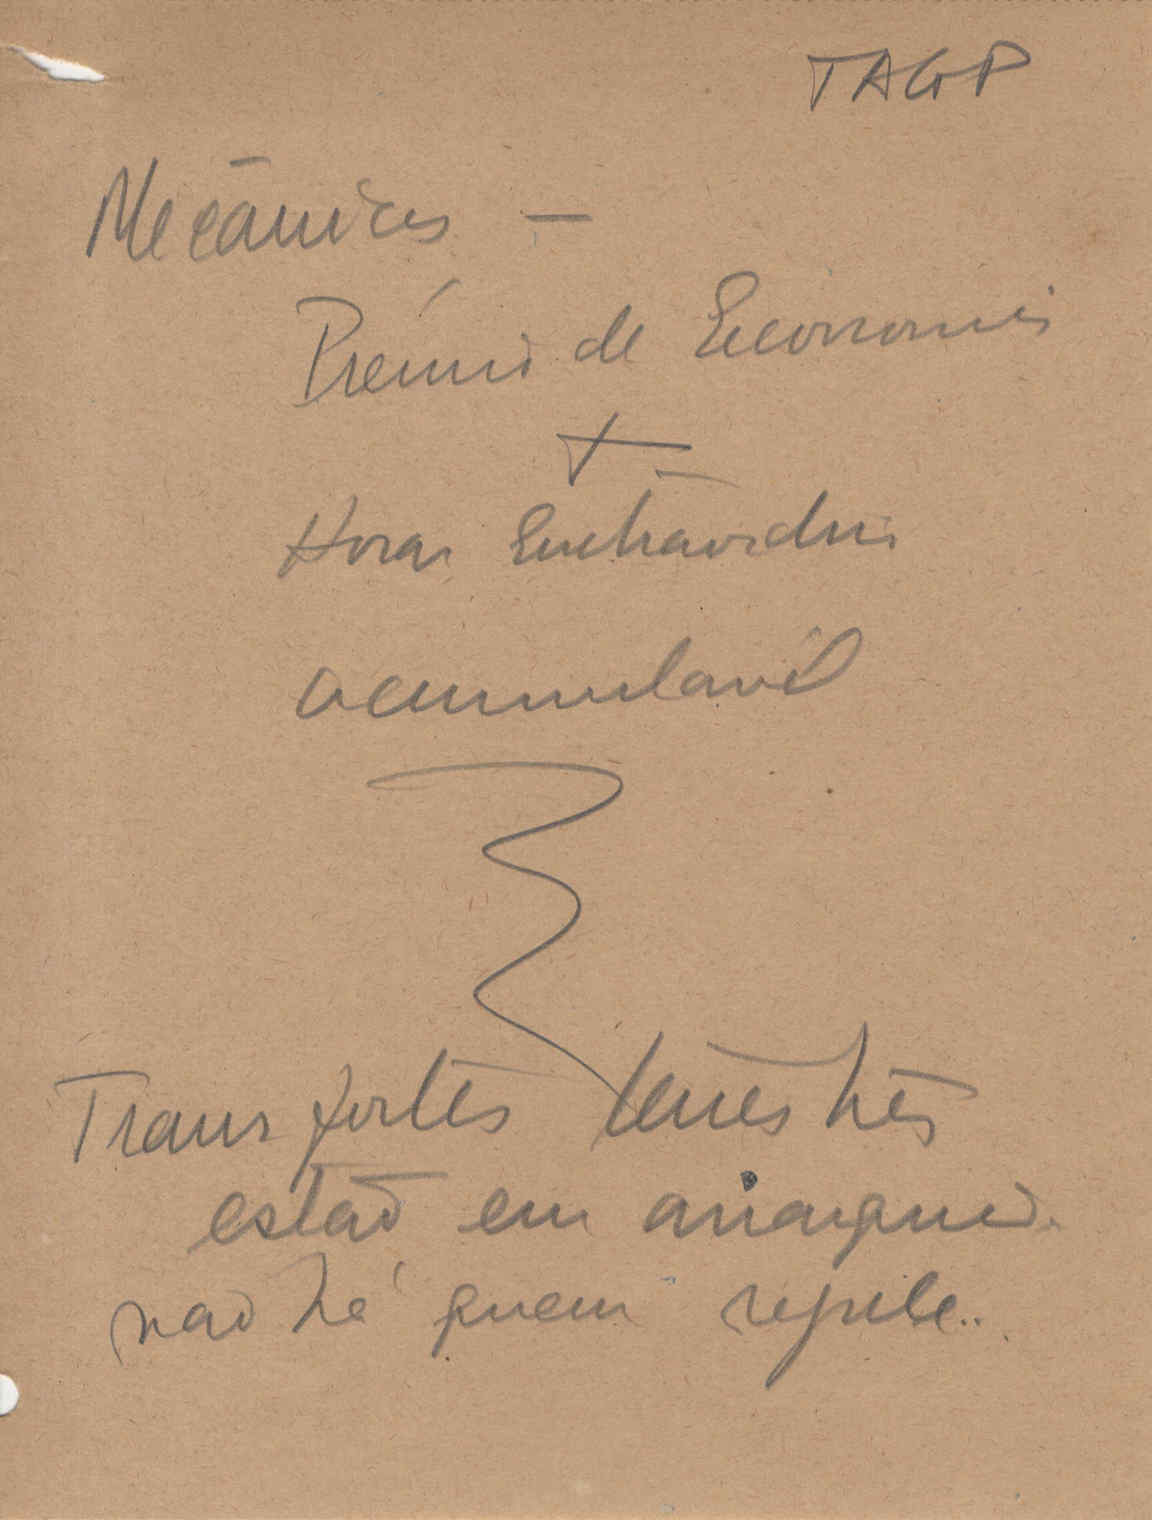 TAGP
Mecânicos —
Prémio de Economia
+
Horas Extraordin.
acumulavel
Transportes terrestres
estão em anarquia.
não há quem